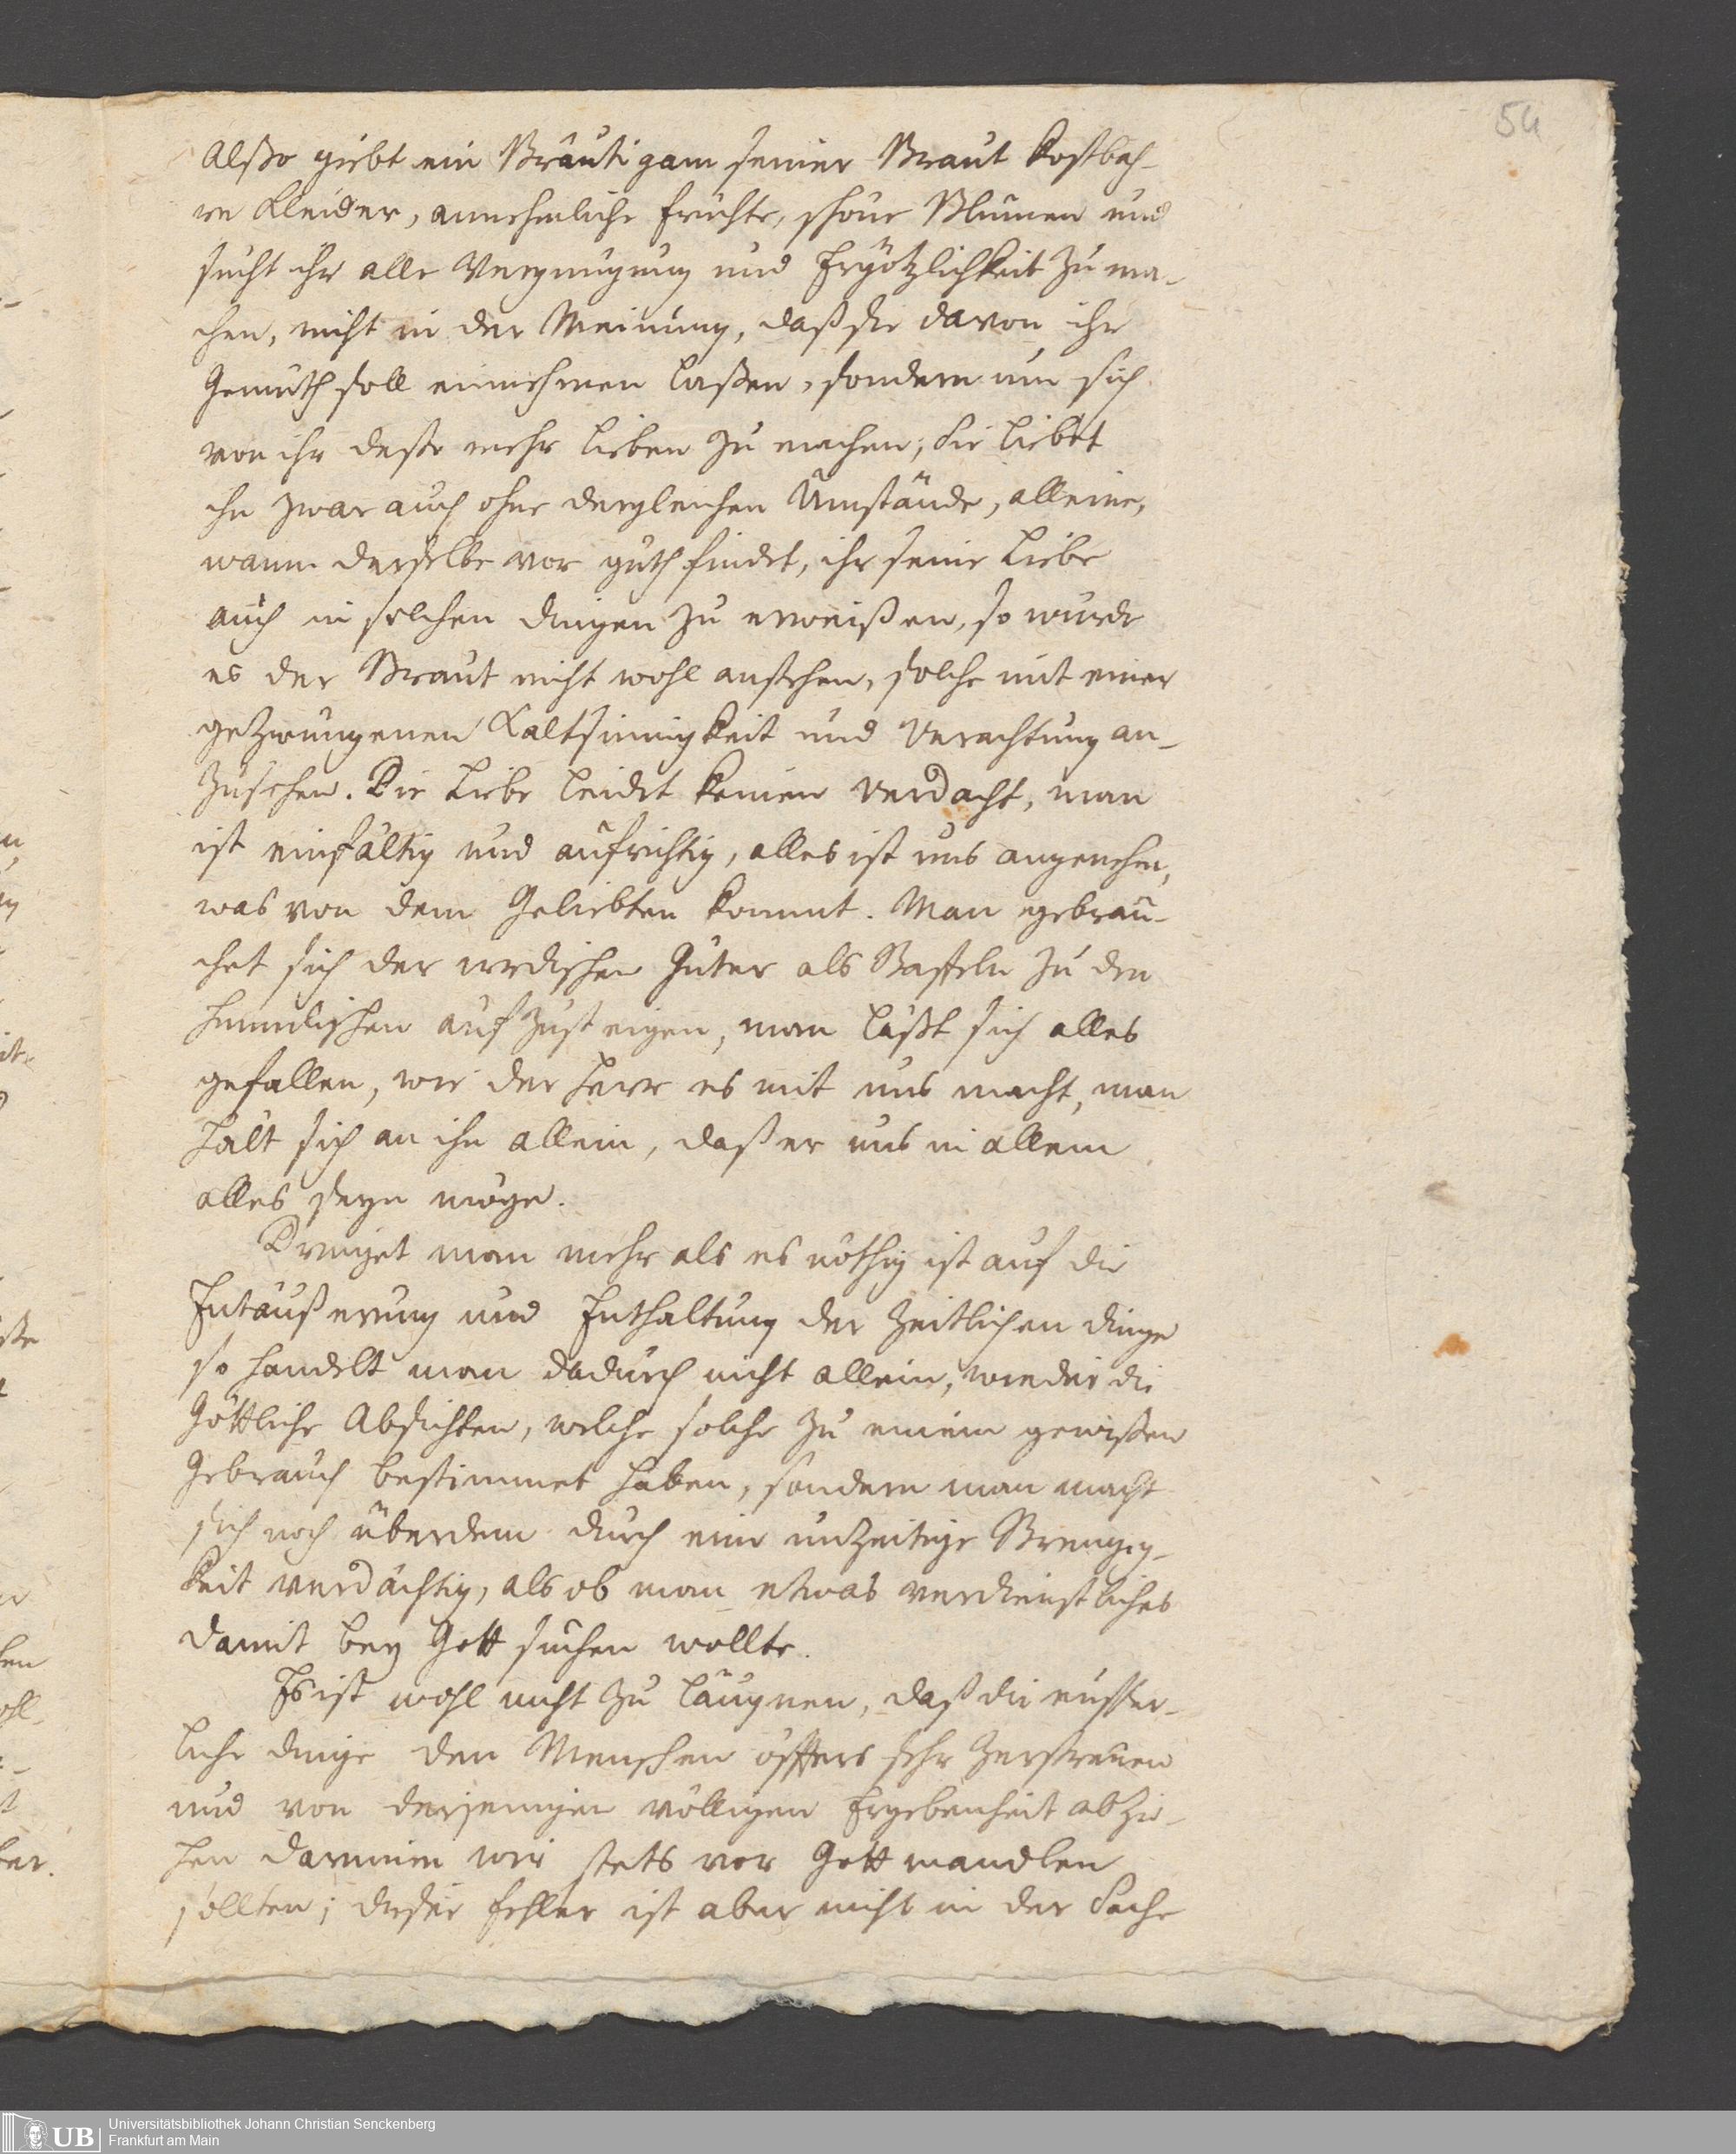 54
Alßo giebt ein Bräutigam seiner Braut kostbah-
re Kleider, annehmliche früchte, schöne Blumen und
sucht ihr alle Vergnügung und Ergötzlichkeit zu ma-
chen, nicht in der Meinung, daß sie davon ihr
Gemüth soll einnehmen laßen, sondern um sich
von ihr desto mehr lieben zu machen; Sie liebet
ihn zwar auch ohne dergleichen Umstände, alleine,
wann derselbe vor guth findet, ihr seine Liebe
auch in solchen dingen zu erweißen, so würde
es der Braut nicht wohl anstehen, solche mit einer
gezwungenen Kaltsinnigkeit und Verachtung an-
zusehen. Die Liebe leidet keinen Verdacht, man
ist einfältig und aufrichtig, alles ist uns angenehm,
was von dem Geliebten kommt. Man gebrau-
chet sich der irrdischen Güter als Staffeln zu den
himmlischen aufzusteigen, man läßt sich alles
gefallen, wie der Herr es mit uns macht, man
hält sich an ihn allein, daß er uns in allem
alles seyn möge.
Dringet man mehr als es nöthig ist auf die
Entäußerung und Enthaltung der Zeitlichen dinge
so handelt man dadurch nicht allein, wieder die
Göttliche Absichten, welche solche zu einem gewißen
Gebrauch bestimmet haben, sondern man macht
sich noch überdem durch eine unzeitige Strengig-
keit verdächtig, als ob man etwas verdienstliches
damit bey Gott suchen wollte.
Es ist wohl nicht zu läugnen, daß die eüsser-
liche dinge den Menschen öffters sehr zerstreuen
und von derjenigen völligen Ergebenheit abzie-
hen darinnen wir stets vor Gott wandlen
sollten; dieser fehler ist aber nicht in der Sache
UB
Universitätsbibliothek Johann Christian Senckenberg
Frankfurt am Main